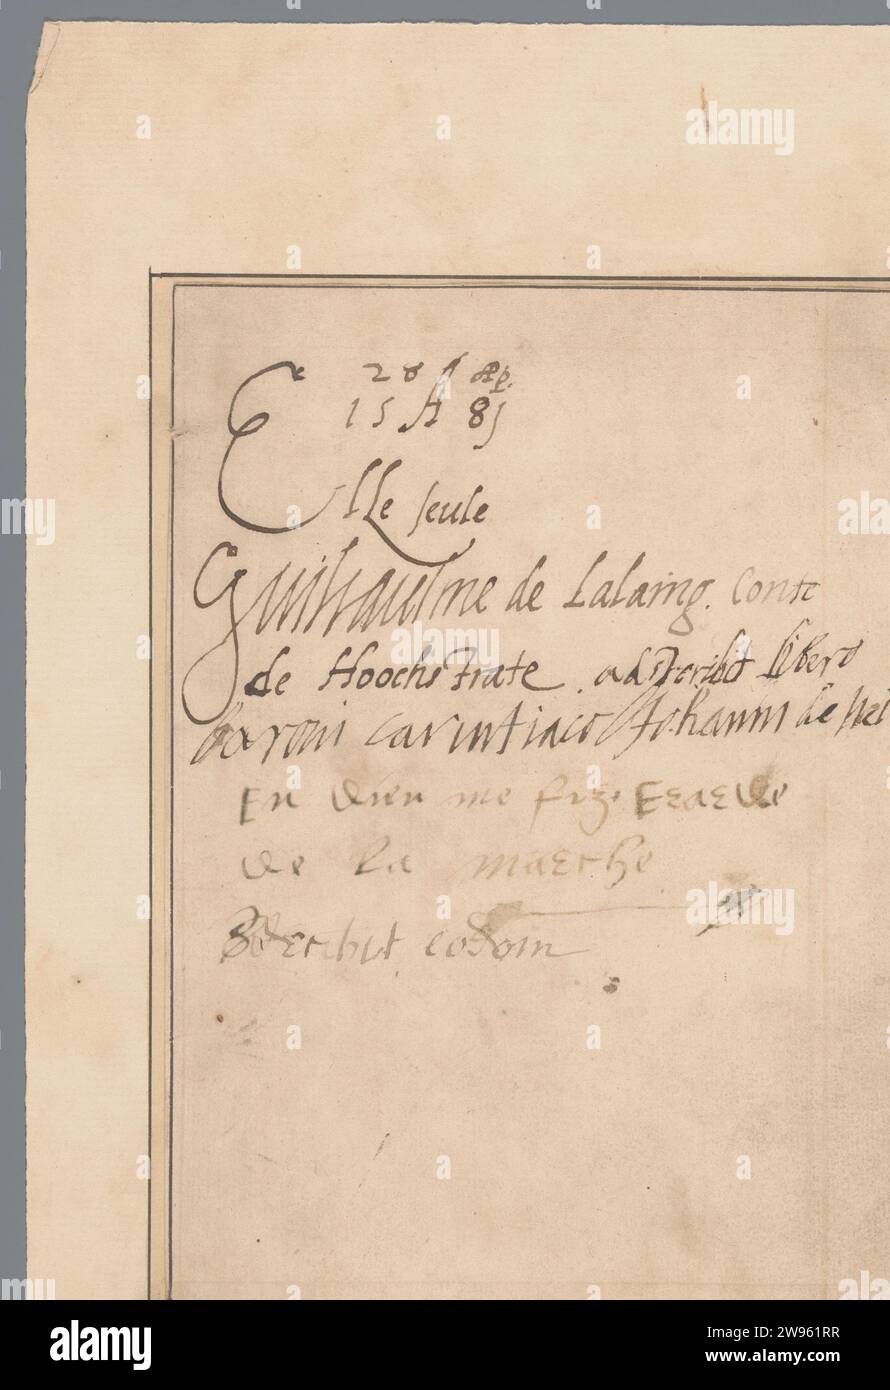 28 Ap.
15 A 81
Elle seule
Guillaulme de Lalaing. Conte
de Hoochstrate. adscribit libero
baroni Carintiaco Johanni de
En dieu me fiz.
de la marche
alamy
Image ID: 2W961RR
www.alamy.com